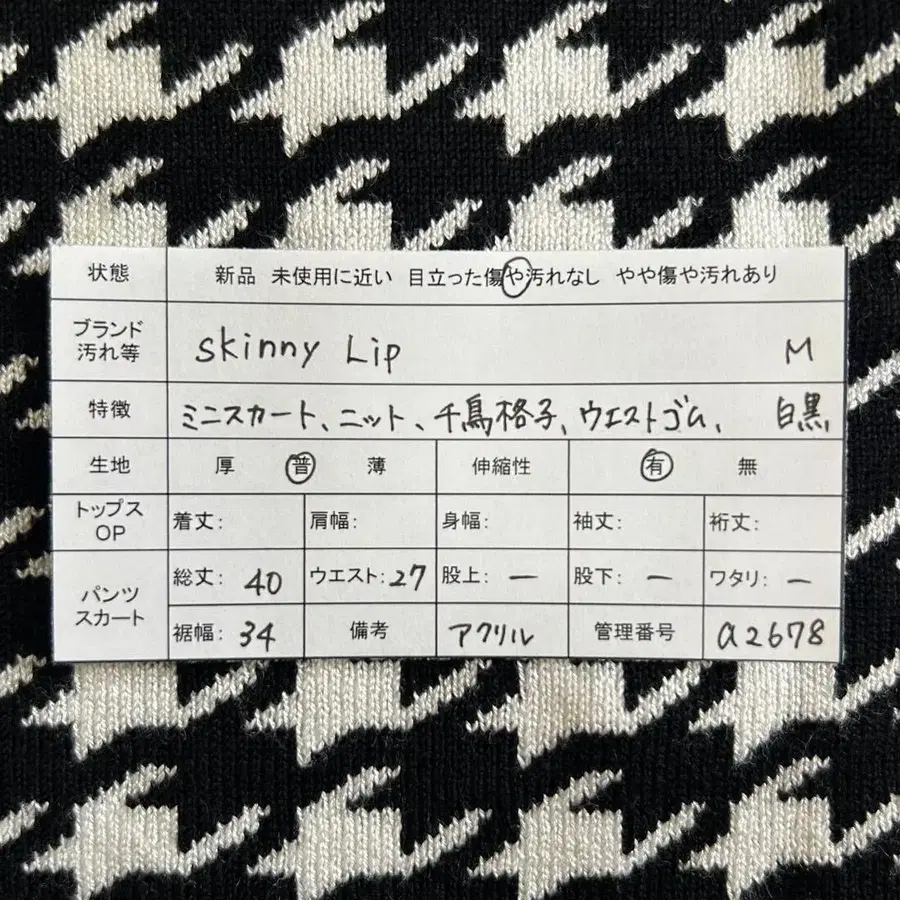 状態 新品 未使用に近い 目立った傷や汚れなし やや傷や汚れあり
ブランド
汚れ等 skinny Lip M
特徴 ミニスカート、ニット、千鳥格子、ウエストゴム、 白黒
生地 厚 普 薄 伸縮性 有 無
トップス
OP 着丈: 肩幅: 身幅: 袖丈: 裄丈:
パンツ
スカート 総丈: 40 ウエスト: 27 股上: ー 股下: ー ワタリ: ー
裾幅: 34 備考 アクリル 管理番号 a2678